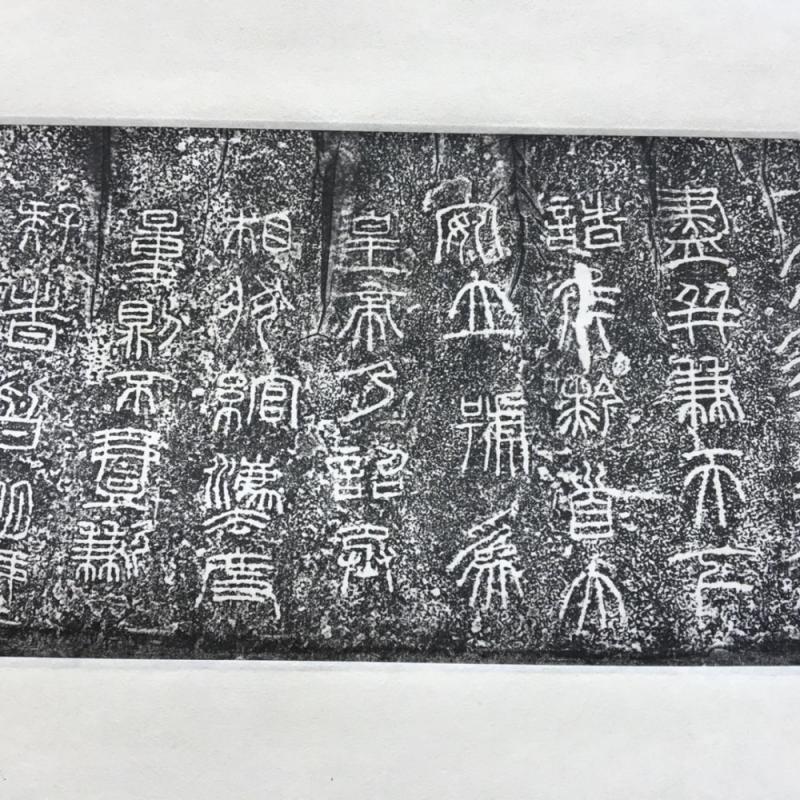 盡并兼天下
諸侯黔首大
安立號為
皇帝乃詔丞
相狀綰灋度
量則不壹歉
疑者皆明壹